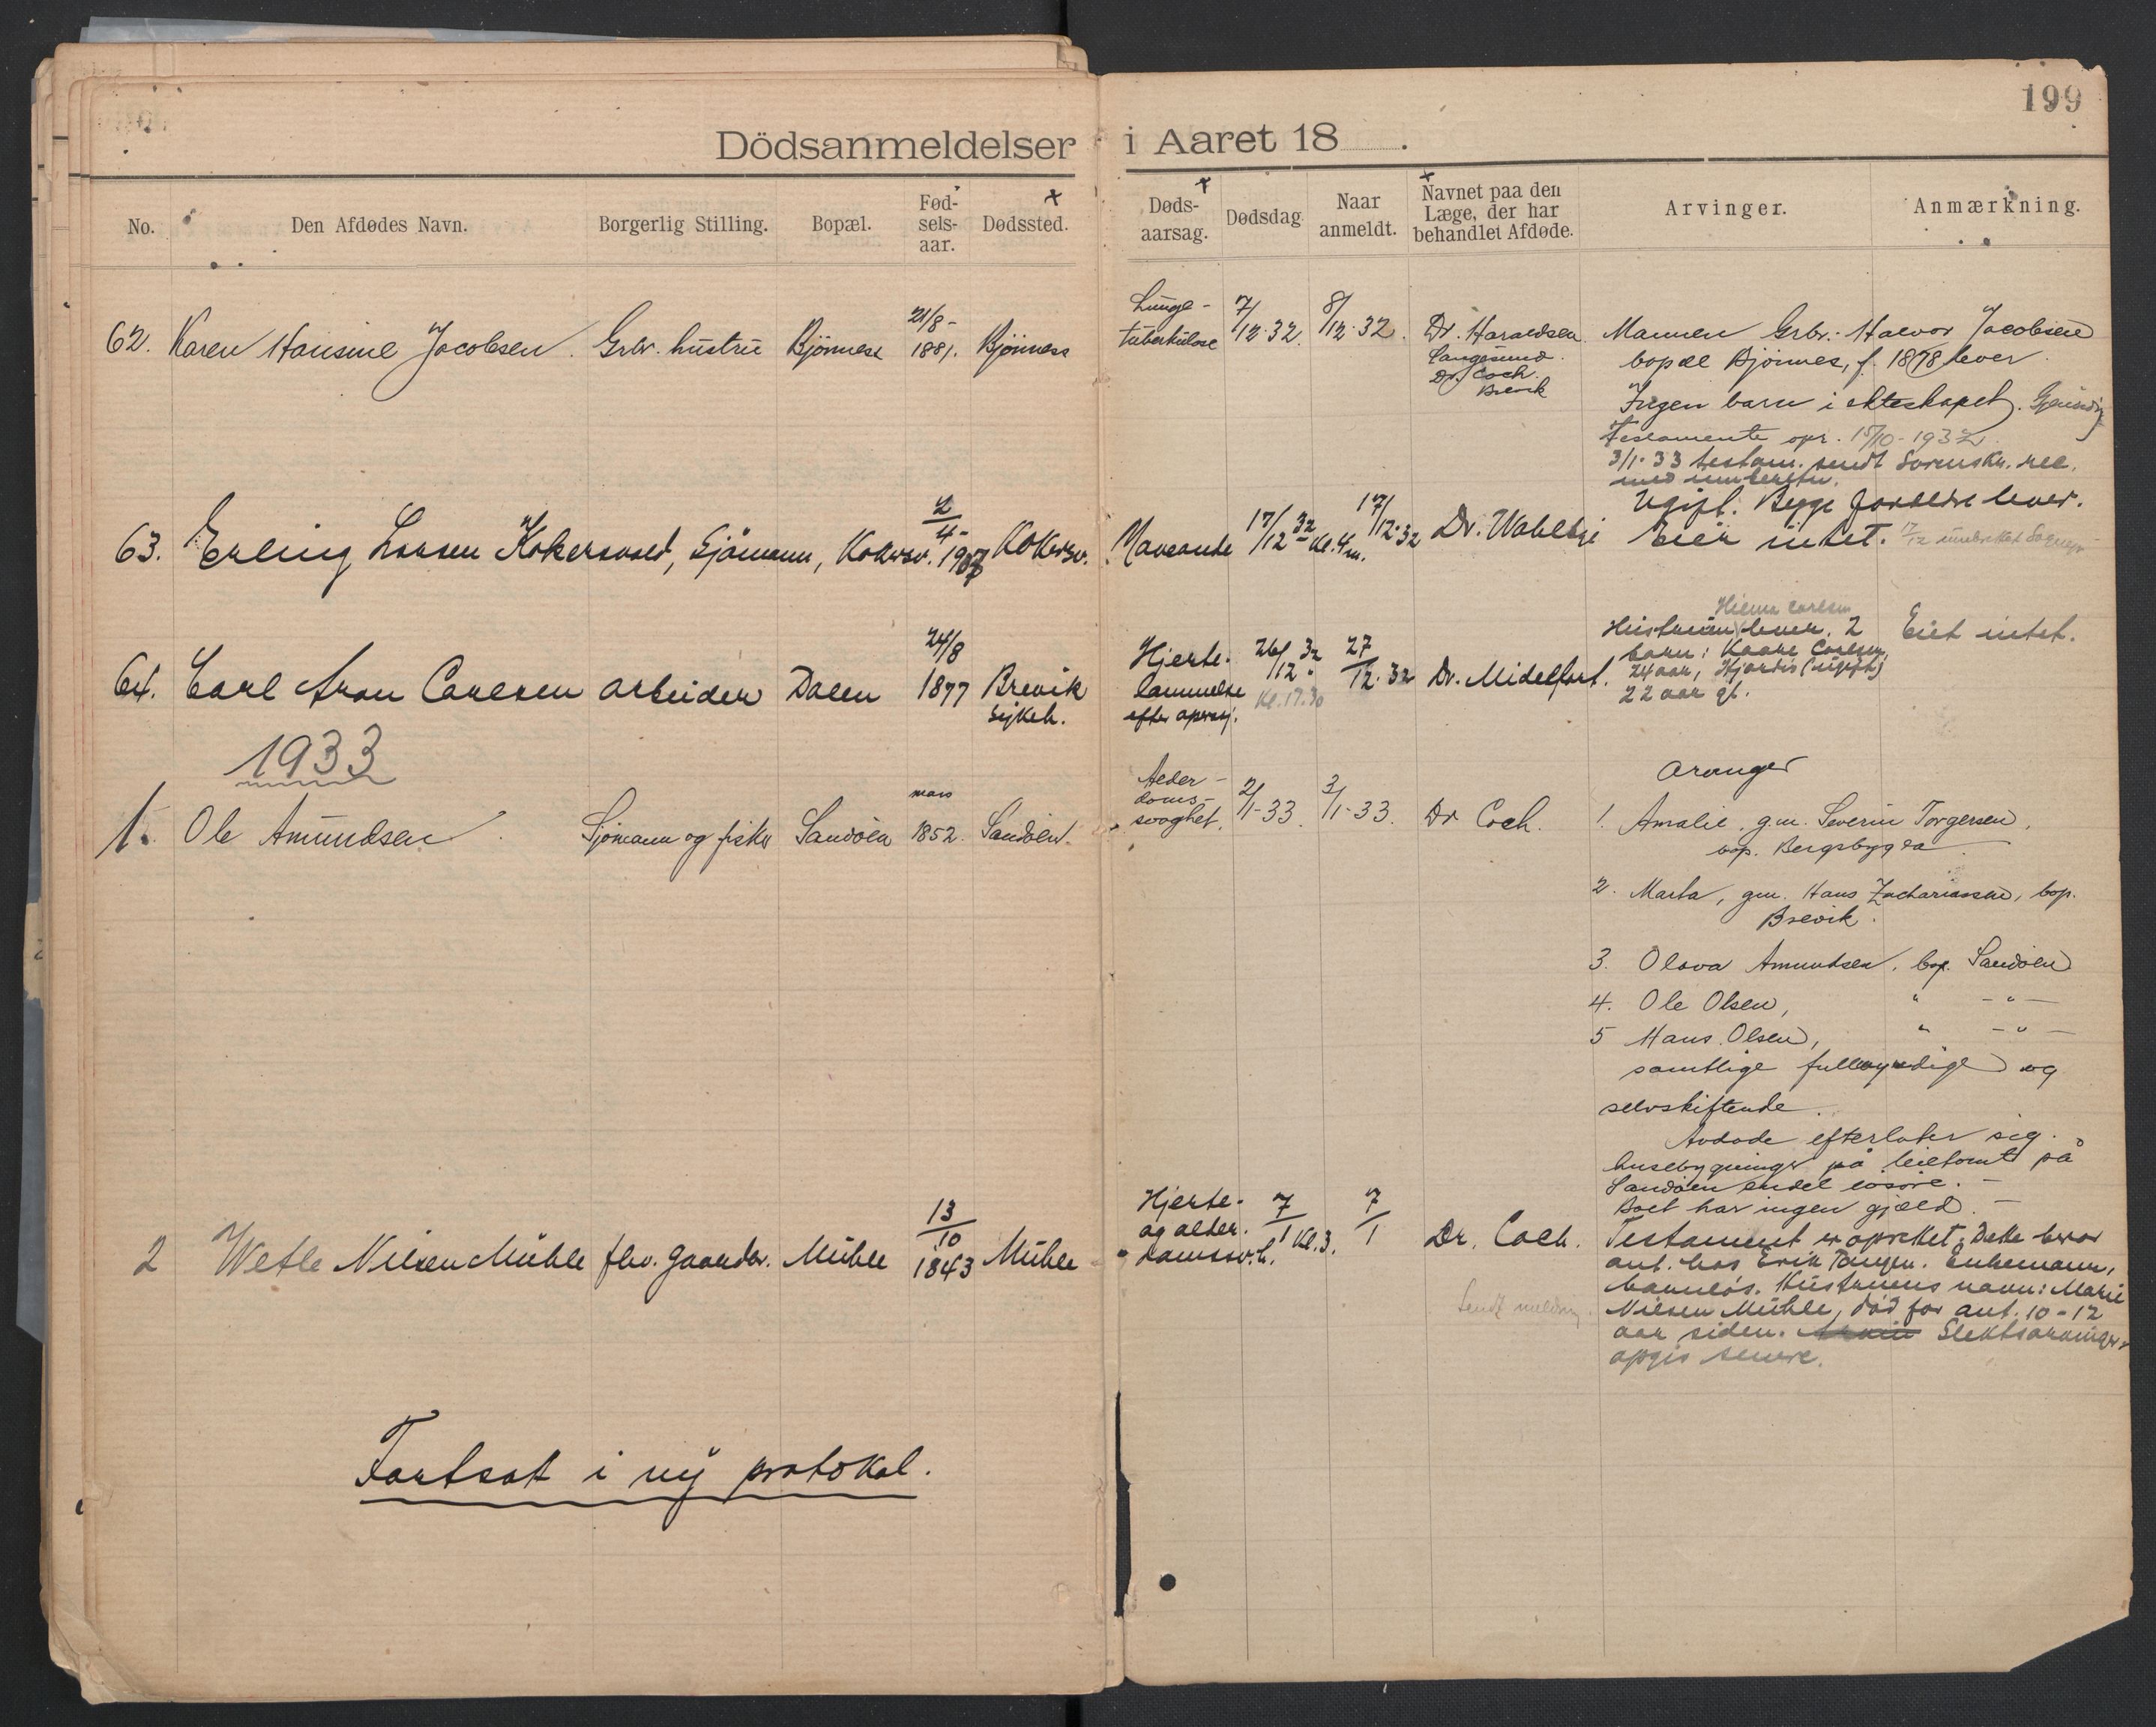 199
Dödsanmeldelser i Aaret 18 .
No. Den Afdødes Navn. Borgerlig Stilling. Bopæl. Fød-sels-aar. Dødssted. Døds-aarsag. Dødsdag. Naar anmeldt. Navnet paa den Læge, der har behandlet Afdøde. Arvinger. Anmærkning.
62. Karen Hansine Jacobsen. Grbr. hustru Bjönness 21/8-1881. Bjönness
Lunge-
tuberkulose 7/12-32. 8/12-32. Dr. Haraldsen
Langesund.
Dr. Coch.
Brevik
Mannen Grbr. Halvor Jacobsen
bopæl Bjönnes, f. 1878 lever.
Ingen barn i ekteskapet. Gjensidig
Testamente opr. 15/10-1932
3/1-33 testam. sendt Sorenskr.
63. Erling Larsen Kokersvold, Sjömann, Kokersv. 2/4-1907 Kokersv.
17/12-32 Kl. 4 m. 17/12-32 Dr.
Ugift. Begge foreldre lever.
Eier intet. 17/12
64. Carl Aron Carlsen arbeider Dalen 24/8 1877 Brevik
sykeh.
Hjerte-
lammelse
efter operasj. 26/12 32 Kl. 17.30 27/12-32 Dr. Midelfart.
Hustruen lever. 2
barn: Kaare Carlsen,
24 aar, Hjørdis (ugift)
22 aar gl.
Eiet intet.
1933
1. Ole Amundsen. Sjömann og fisker Sandöen mars 1852. Sandöen.
Alder-
doms-
svaghet. 2/1-33. 3/1-33. Dr Coch.
Arvinger
1. Amalie, gm. Severin Torgersen,
bop. Bergsbygda
2. Marta, gm. Hans Zachariassen, bop.
Brevik.
3. Olava Amundsen, bop. Sandöen
4. Ole Olsen, " - " -
5 Hans Olsen, " - " -
samtlige fullmyndige og
selvskiftende.
Avdöde efterlater sig
husebygninger på leietomt på
Sandöen endel lösöre. -
Boet har ingen gjæld. -
2 Wetle Nilsen Mühle fhv. gaardbr. Mühle 13/10 1843 Mühle
Hjerte-
og alder-
domssv.h. 7/1 Kl. 3. 7/1 Dr. Coch.
Sendt melding.
Testament er oprettet. Dette beror
ant. hos Erik Tangen. Enkemann,
barnlös. Hustruens navn: Marie
Nilsen Mühle, död for ant. 10-12
aar siden. Slektsarvinger
opgis senere.
Fortsat i ny protokol.